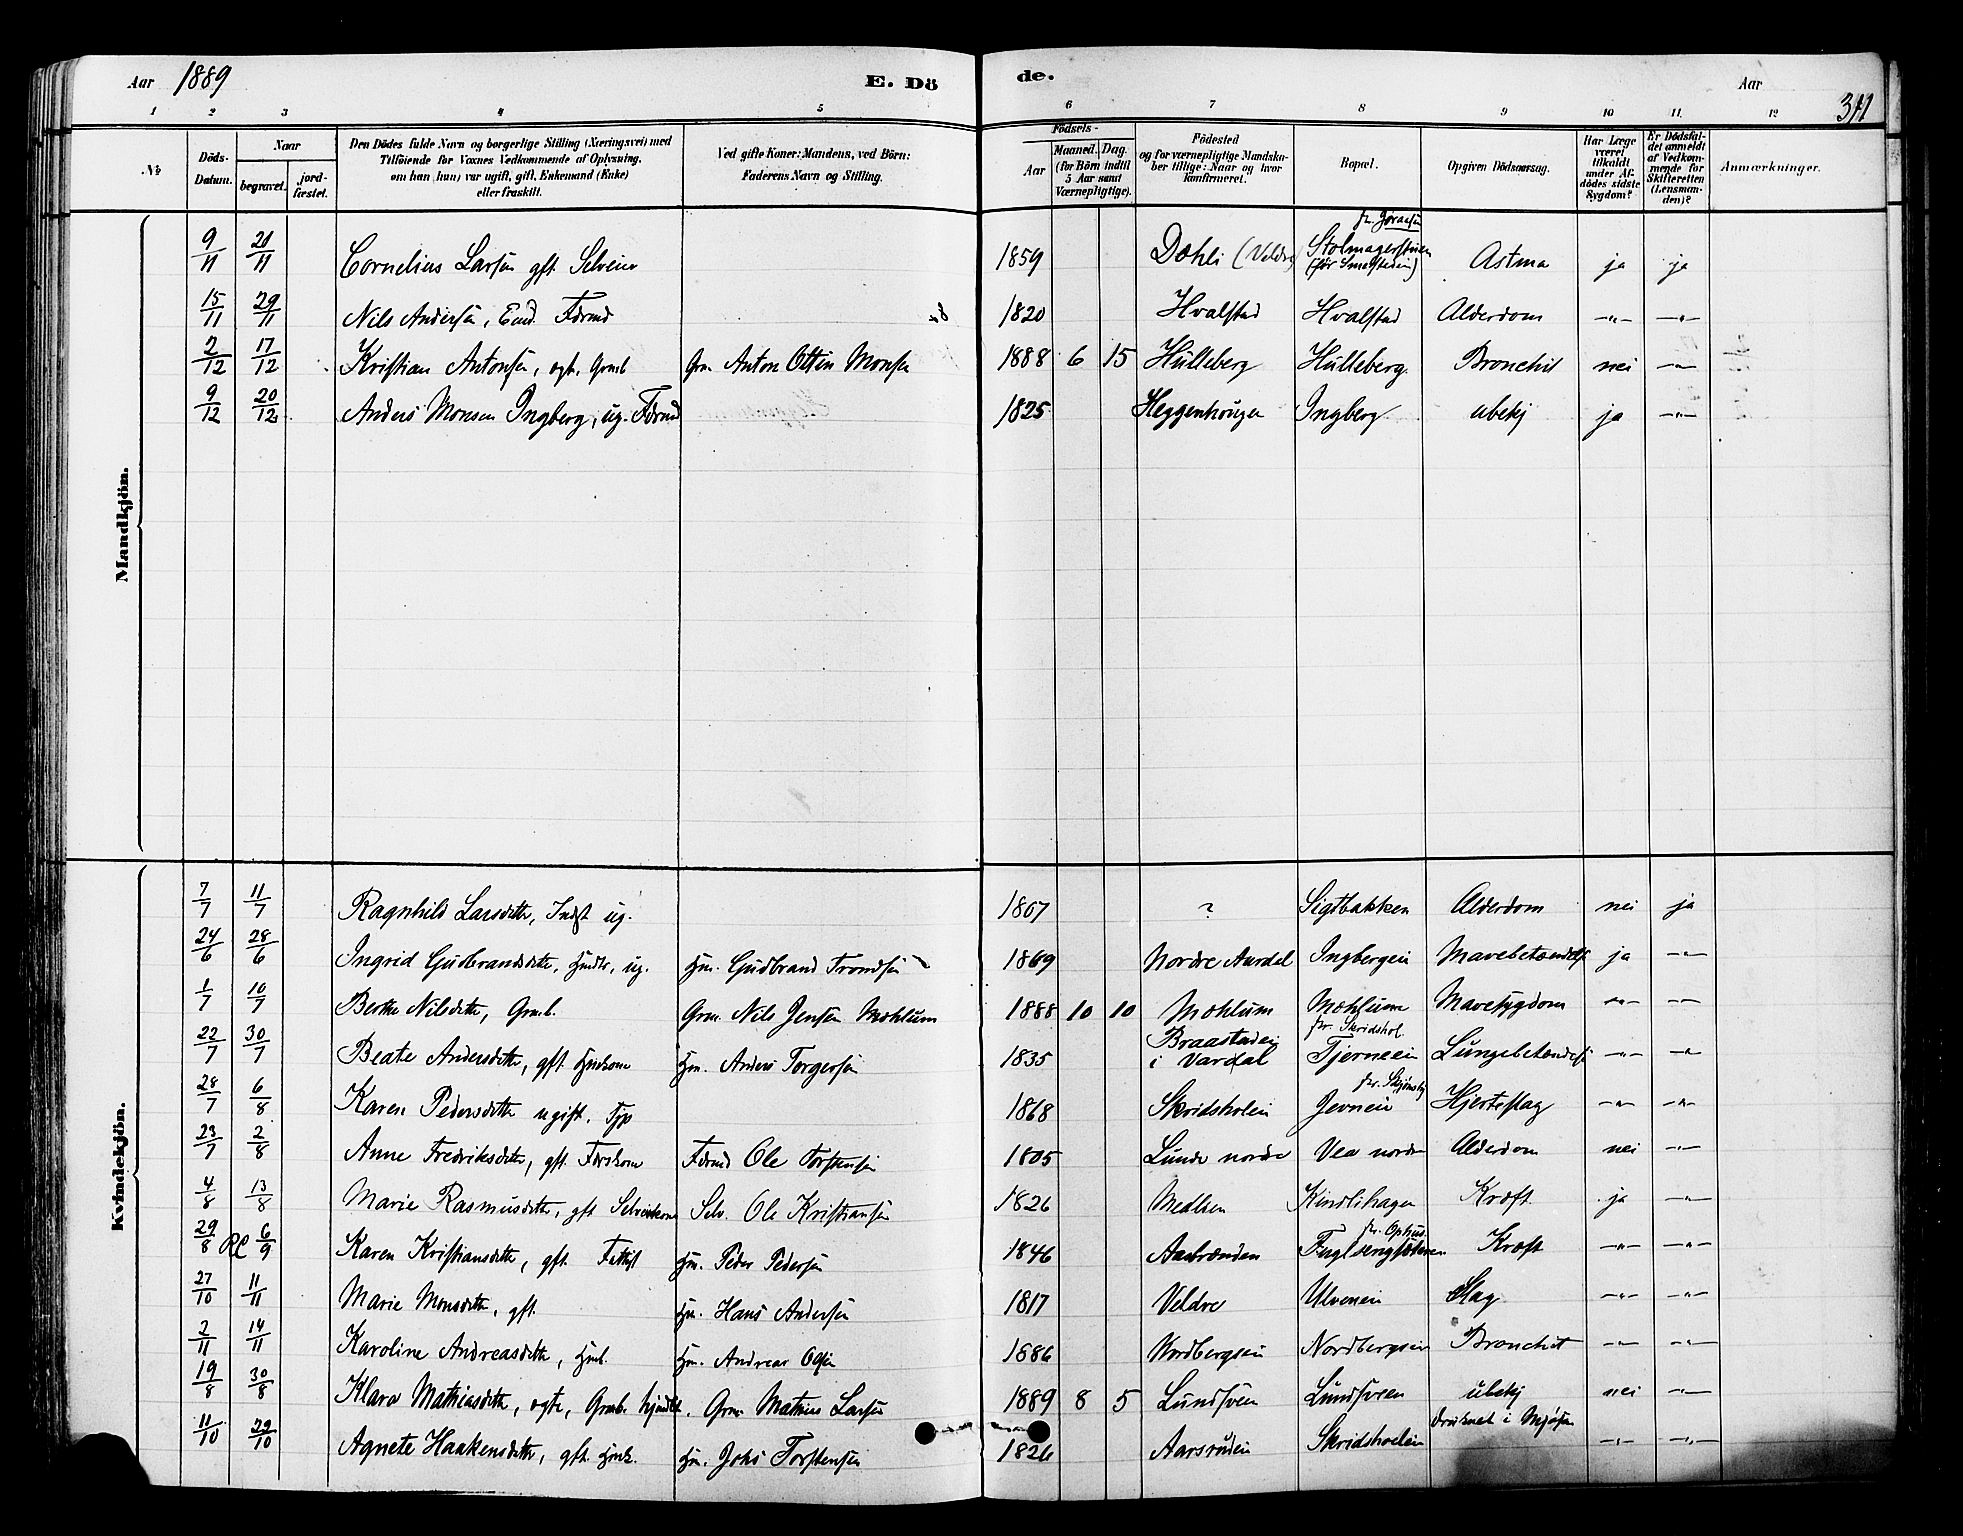 Aar 1889 E. Dö de. Aar 311
1 2 3 4 5 6 7 8 9 10 11. 12
№ Döds-Datum. Naar begravet. jord-fæstet. Den Dödes fulde Navn og borgerlige Stilling (Næringsvei) med Tilföiende for Voxnes Vedkommende af Oplysning. om han (hun) var ugift, gift, Enkemand (Enke) eller fraskilt. Ved gifte Koner: Mandens, ved Börn: Faderens Navn og Stilling. Födsels- Aar Maaned. Dag. (for Börn indtil 5 Aar samt Værnepligtige). Födested og for værnepligtige Mandskaber tillige: Naar og hvor konfirmeret. Bopæl. Opgiven Dödsaarsag. Har Læge været tilkaldt under Afdödes sidste Sygdom? Er Dödsfaldet anmeldt af Vedkommende for Skifteretten (Lensmanden)? Anmærkninger.
Mandkjön.
9/11 21/11 Cornelius Larsen gft. Selveier 1859 Dæhli (Veldre) Astma ja ja
15/11 29/11 Nils Andersen, Fdrmd 1820 Hvalstad Hvalstad Alderdom -"- -"-
2/12 17/12 Kristian Antonsen, ægt. Grmb Grm. Anton Ottin Monsen 1888 6 15 Hulleberg Hulleberg Bronchit nei -"-
9/12 20/12 Anders Monsen Ingberg, ug. Fdrmd 1825 Heggenhougen Ingberg ubekj ja -"-
Kvindekjön.
7/7 11/7 Ragnhild Larsdtr, Indst ug. 1807 ? Sigtbakken Alderdom nei ja
24/6 28/6 Ingrid Gudbrandsdtr, ug. Hm. Gudbrand Trondsen 1869 Nordre Aurdal Ingbergei Mavebetændelse ja -"-
1/7 10/7 Berthe Nilsdtr, Grmb. Grm. Nils Jensen Mæhlum 1888 10 10 Mæhlum Mæhlum Mavesygdom -"- -"-
22/7 30/7 Beate Andersdtr, gft. Hm. Anders Torgersen 1835 Braastadei i Vardal fr. Skridshol. Tjerneei Lungebetændelse -"- -"-
28/7 6/8 Karen Pedersdtr ugift. Tjp 1868 Skridsholei fr. Skjønsby Jevneei Hjerteslag -"- -"-
23/7 2/8 Anne Fredriksdtr, gft. Fdrskone Fdrmd Ole Torstensen 1805 Lunde nordre Vea nordre Alderdom nei -"-
4/8 13/8 Marie Rasmusdtr, gft Selveierkone Selv. Ole Kristiansen 1826 Medlien Kindlihagen Kræft ja -"-
29/8 6/9 Karen Kristiansdtr, gft. Fattigl Hm. Peder Pedersen 1846 fr. Ophus. Kræft -"- -"-
27/10 11/11 Marie Monsdtr, gft. Hm. Hans Andersen 1817 Veldre Ulveneie Slag -"- -"-
2/11 14/11 Karoline Andreasdtr, Hm. Andreas Olsen 1886 Nordbergsei Nordbergsei Bronchit -"- -"-
19/8 30/8 Klara Mathiasdtr, ægte, Grmb. Grm. Mathias Larsen 1889 8 5 Lundsveen Lundsveen ubekj nei -"-
11/10 29/10 Agnete Haakensdtr, gft. Hm. Johs Torstensen 1826 Aarsrudei Skridsholei druknet i Mjøsen -"- -"-